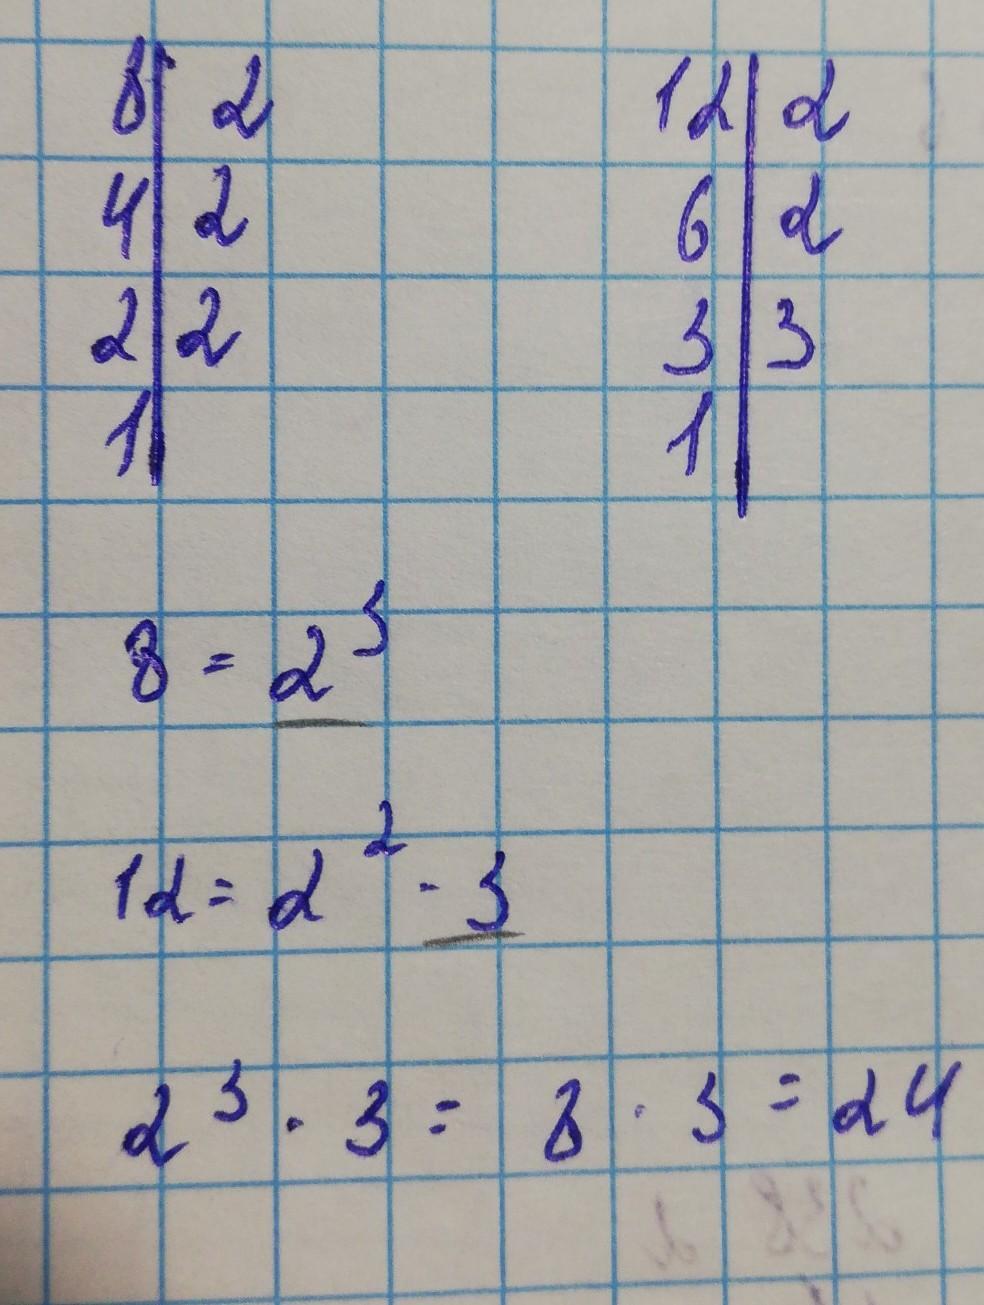 8 | 2 12 | 2
4 | 2 6 | 2
2 | 2 3 | 3
1 | 1 |
8 = 2³
12 = 2² · 3
2³ · 3 = 8 · 3 = 24